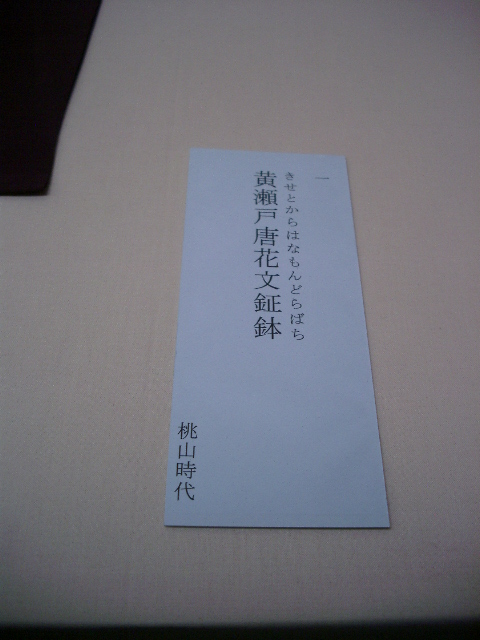 一
きせとからはなもんどらばち
黄瀬戸唐花文鉦鉢
桃山時代